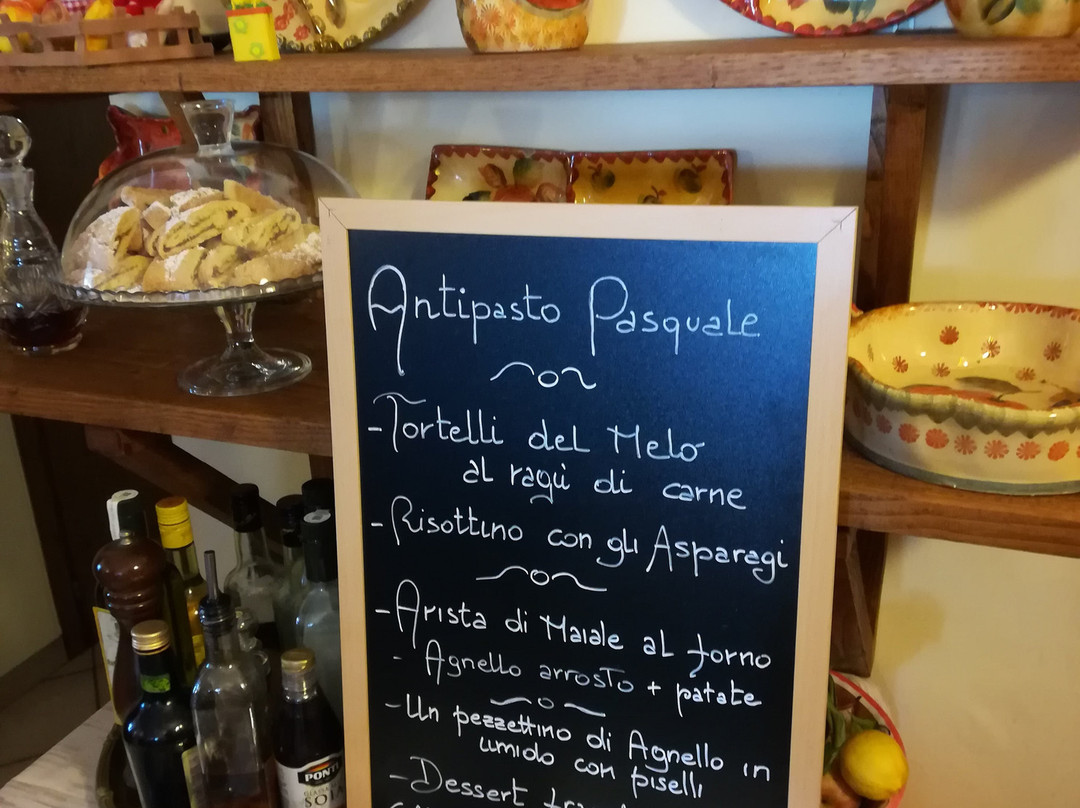 Antipasto Pasquale
- Tortelli del Melo
al ragù di carne
- Risottino con gli Asparagi
- Arista di Maiale al forno
- Agnello arrosto + patate
- Un pezzettino di Agnello in
umido con piselli
- Dessert
PONTI